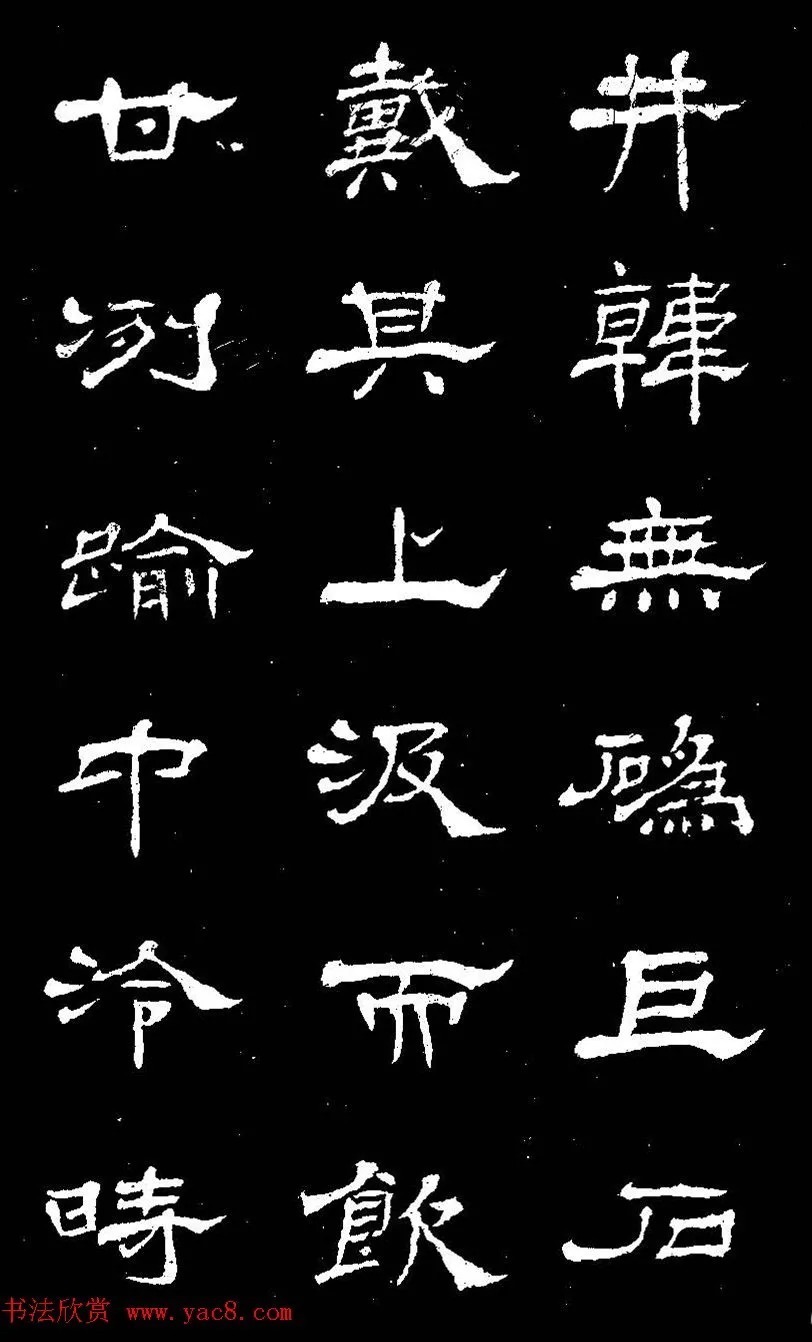 井韓無磶巨石
戴其上汲而飲
甘冽踰中泠時
书法欣赏 www.yac8.com